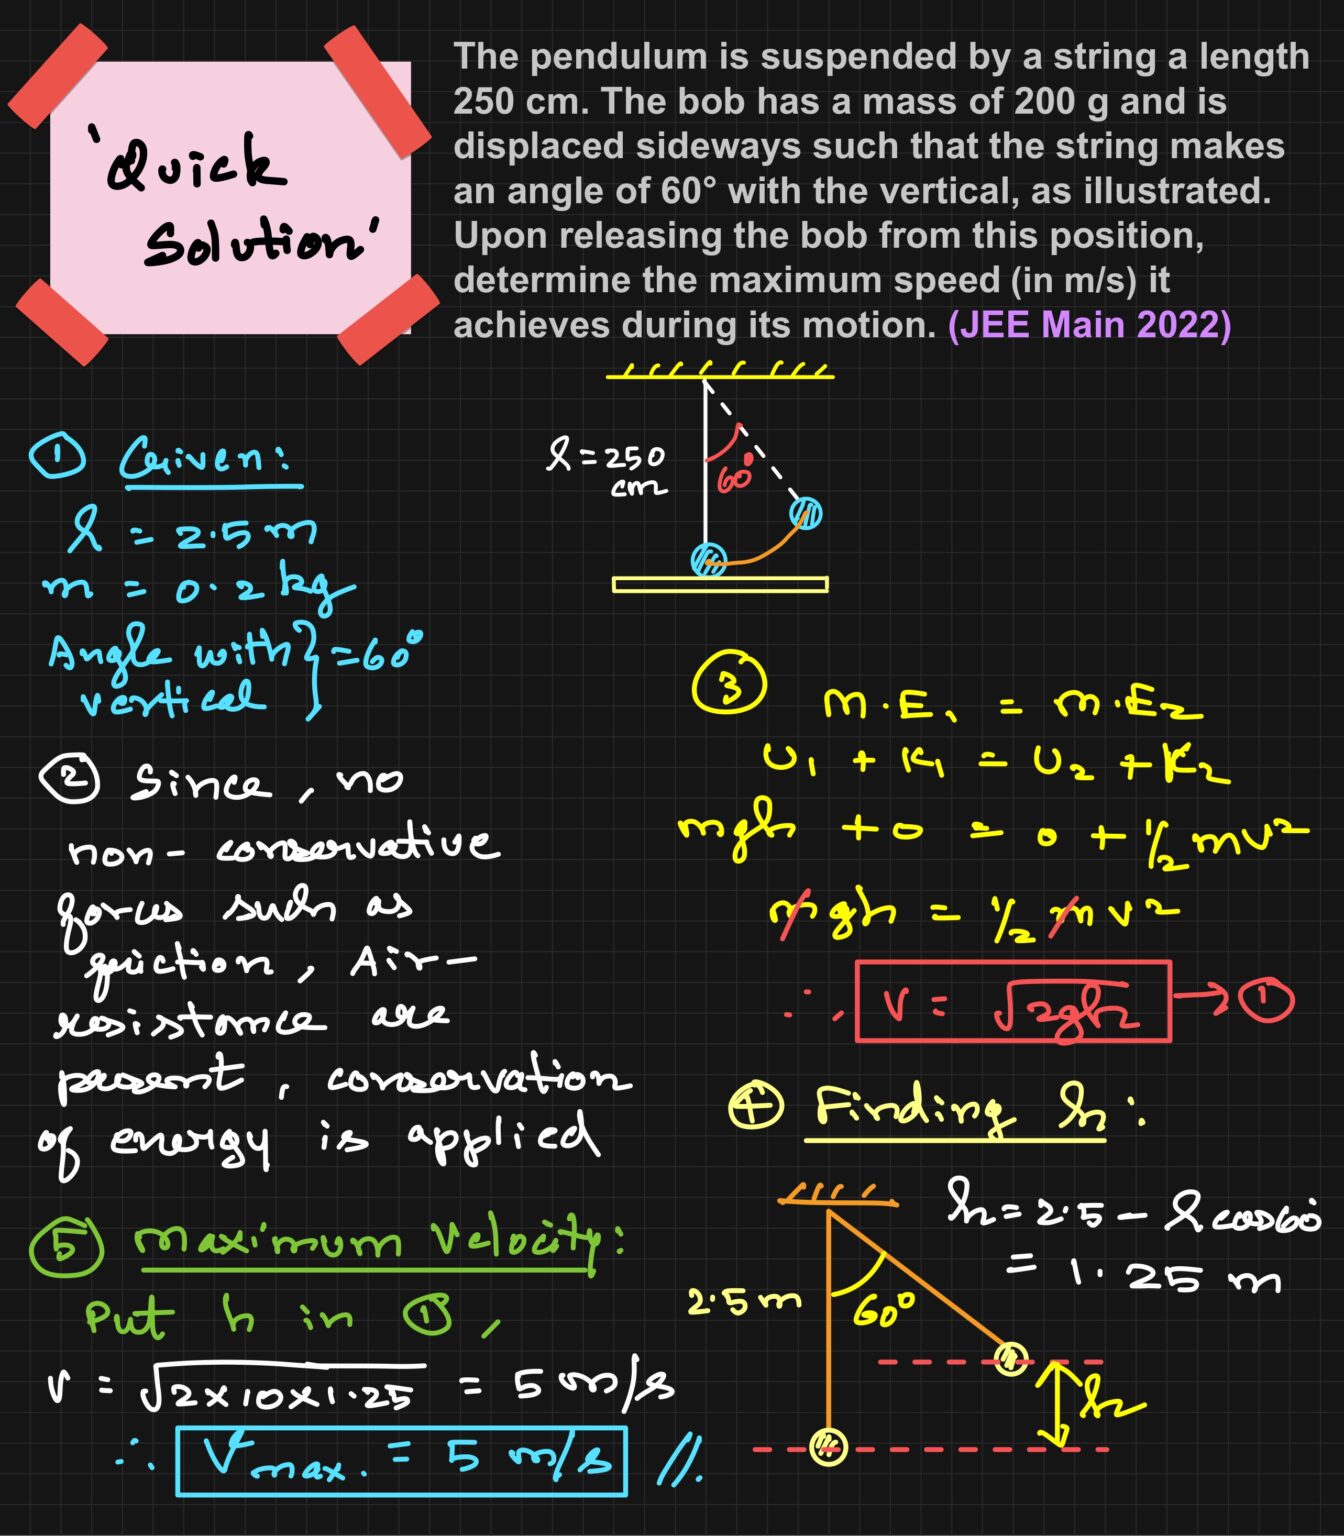 'Quick
Solution'
The pendulum is suspended by a string a length
250 cm. The bob has a mass of 200 g and is
displaced sideways such that the string makes
an angle of 60° with the vertical, as illustrated.
Upon releasing the bob from this position,
determine the maximum speed (in m/s) it
achieves during its motion. (JEE Main 2022)
l = 250
cm
60°
① Given:
l = 2.5 m
m = 0.2 kg
Angle with
vertical } = 60°
② Since, no
non-conservative
forces such as
friction, Air-
resistance are
present, conservation
of energy is applied
③ M.E₁ = M.E₂
U₁ + K₁ = U₂ + K₂
mgh + 0 = 0 + 1/2 mv²
mgh = 1/2 mv²
∴, v = √2gh → ①
④ Finding h:
h = 2.5 - l cos60
= 1.25 m
2.5 m
60°
h
⑤ Maximum Velocity:
Put h in ①,
v = √2×10×1.25 = 5 m/s
∴ Vmax. = 5 m/s //.